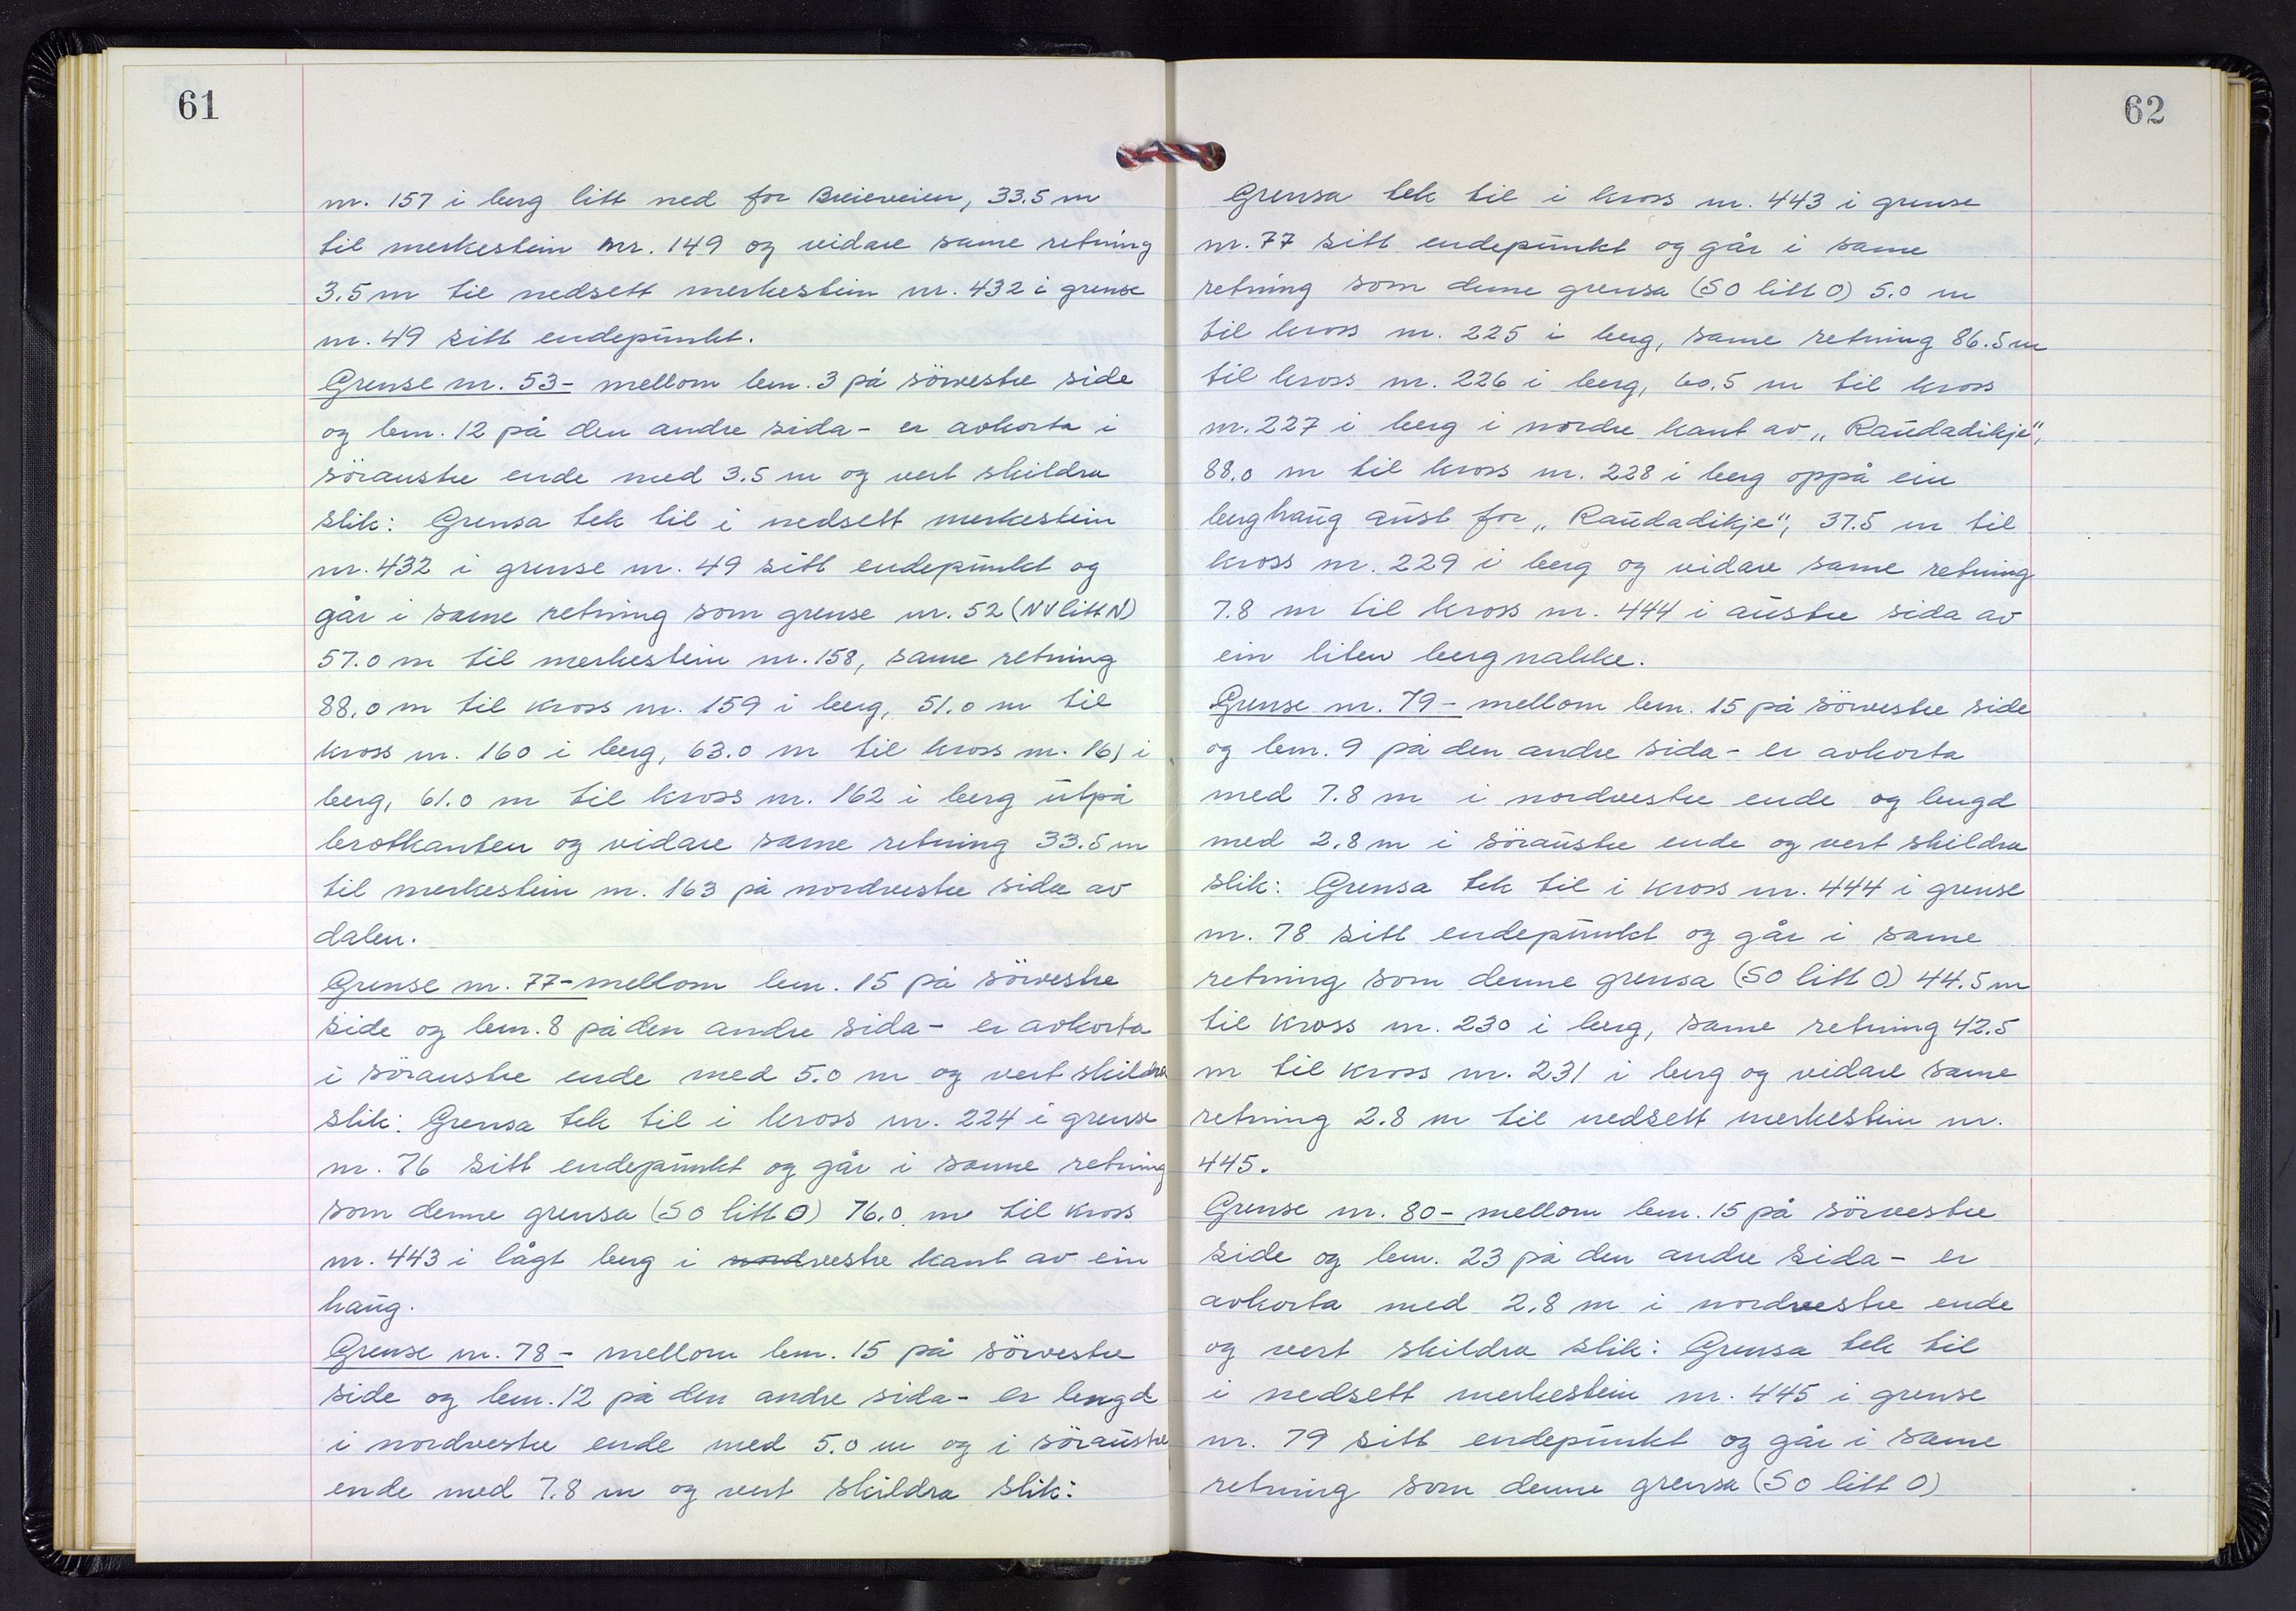 61
nr. 157 i berg litt ned for Breieveien, 33.5 m
til merkestein nr. 149 og vidare same retning
3.5 m til nedsett merkestein nr. 432 i grense
nr. 49 sitt endepunkt.
Grense nr. 53 - mellom lem. 3 på sörvestre side
og lem. 12 på den andre sida - er avkorta i
söraustre ende med 3.5 m og vert skildra
slik: Grensa tek til i nedsett merkestein
nr. 432 i grense nr. 49 sitt endepunkt og
går i same retning som grense nr. 52 (NV litt N)
57.0 m til merkestein nr. 158, same retning
88.0 m til kross nr. 159 i berg, 51.0 m til
kross nr. 160 i berg, 63.0 m til kross nr. 161 i
berg, 61.0 m til kross nr. 162 i berg utpå
brotkanten og vidare same retning 33.5 m
til merkestein nr. 163 på nordvestre sida av
dalen.
Grense nr. 77 - mellom lem. 15 på sörvestre
side og lem. 8 på den andre sida - er avkorta
i söraustre ende med 5.0 m og vert skildra
slik: Grensa tek til i kross nr. 224 i grense
nr. 76 sitt endepunkt og går i same retning
som denne grensa (SO litt O) 76.0 m til kross
nr. 443 i lågt berg i nordvestre kant av ein
haug.
Grense nr. 78 - mellom lem. 15 på sörvestre
side og lem. 12 på den andre sida - er lengd
i nordvestre ende med 5.0 m og i söraustre
ende med 7.8 m og vert skildra slik:
62
Grensa tek til i kross nr. 443 i grense
nr. 77 sitt endepunkt og går i same
retning som denne grensa (SO litt O) 5.0 m
til kross nr. 225 i berg, same retning 86.5 m
til kross nr. 226 i berg, 60.5 m til kross
nr. 227 i berg i nordre kant av „Raudadikje",
88.0 m til kross nr. 228 i berg oppå ein
berghaug aust for „Raudadikje", 37.5 m til
kross nr. 229 i berg og vidare same retning
7.8 m til kross nr. 444 i austre sida av
ein liten bergnakke.
Grense nr. 79 - mellom lem. 15 på sörvestre side
og lem. 9 på den andre sida - er avkorta
med 7.8 m i nordvestre ende og lengd
med 2.8 m i söraustre ende og vert skildra
slik: Grensa tek til i kross nr. 444 i grense
nr. 78 sitt endepunkt og går i same
retning som denne grensa (SO litt O) 44.5 m
til kross nr. 230 i berg, same retning 42.5
m til kross nr. 231 i berg og vidare same
retning 2.8 m til nedsett merkestein nr.
445.
Grense nr. 80 - mellom lem. 15 på sörvestre
side og lem. 23 på den andre sida - er
avkorta med 2.8 m i nordvestre ende
og vert skildra slik: Grensa tek til
i nedsett merkestein nr. 445 i grense
nr. 79 sitt endepunkt og går i same
retning som denne grensa (SO litt O)